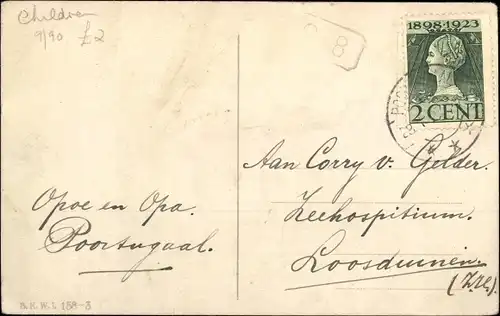 Children
9/90 £2
B
1898-1923
2 CENT
Aan Corry v. Gelder.
Zeehospitium.
Loosduinen.
Opoe en Opa.
Poortugaal.
B. K. W. I. 158-3